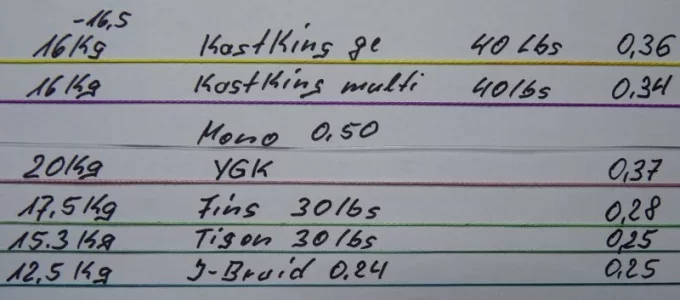 -16,5
16Kg KastKing ge 40 Lbs 0,36
16Kg KastKing multi 40lbs 0,34
Mono 0,50
20Kg YGK 0,37
17,5Kg Fins 30lbs 0,28
15.3Kg Tigon 30lbs 0,25
12,5Kg J-Braid 0.24 0,25